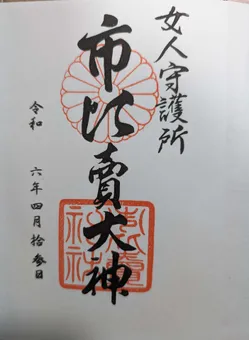 女人守護所
市比賣大神
令和 六年 四月 拾参日